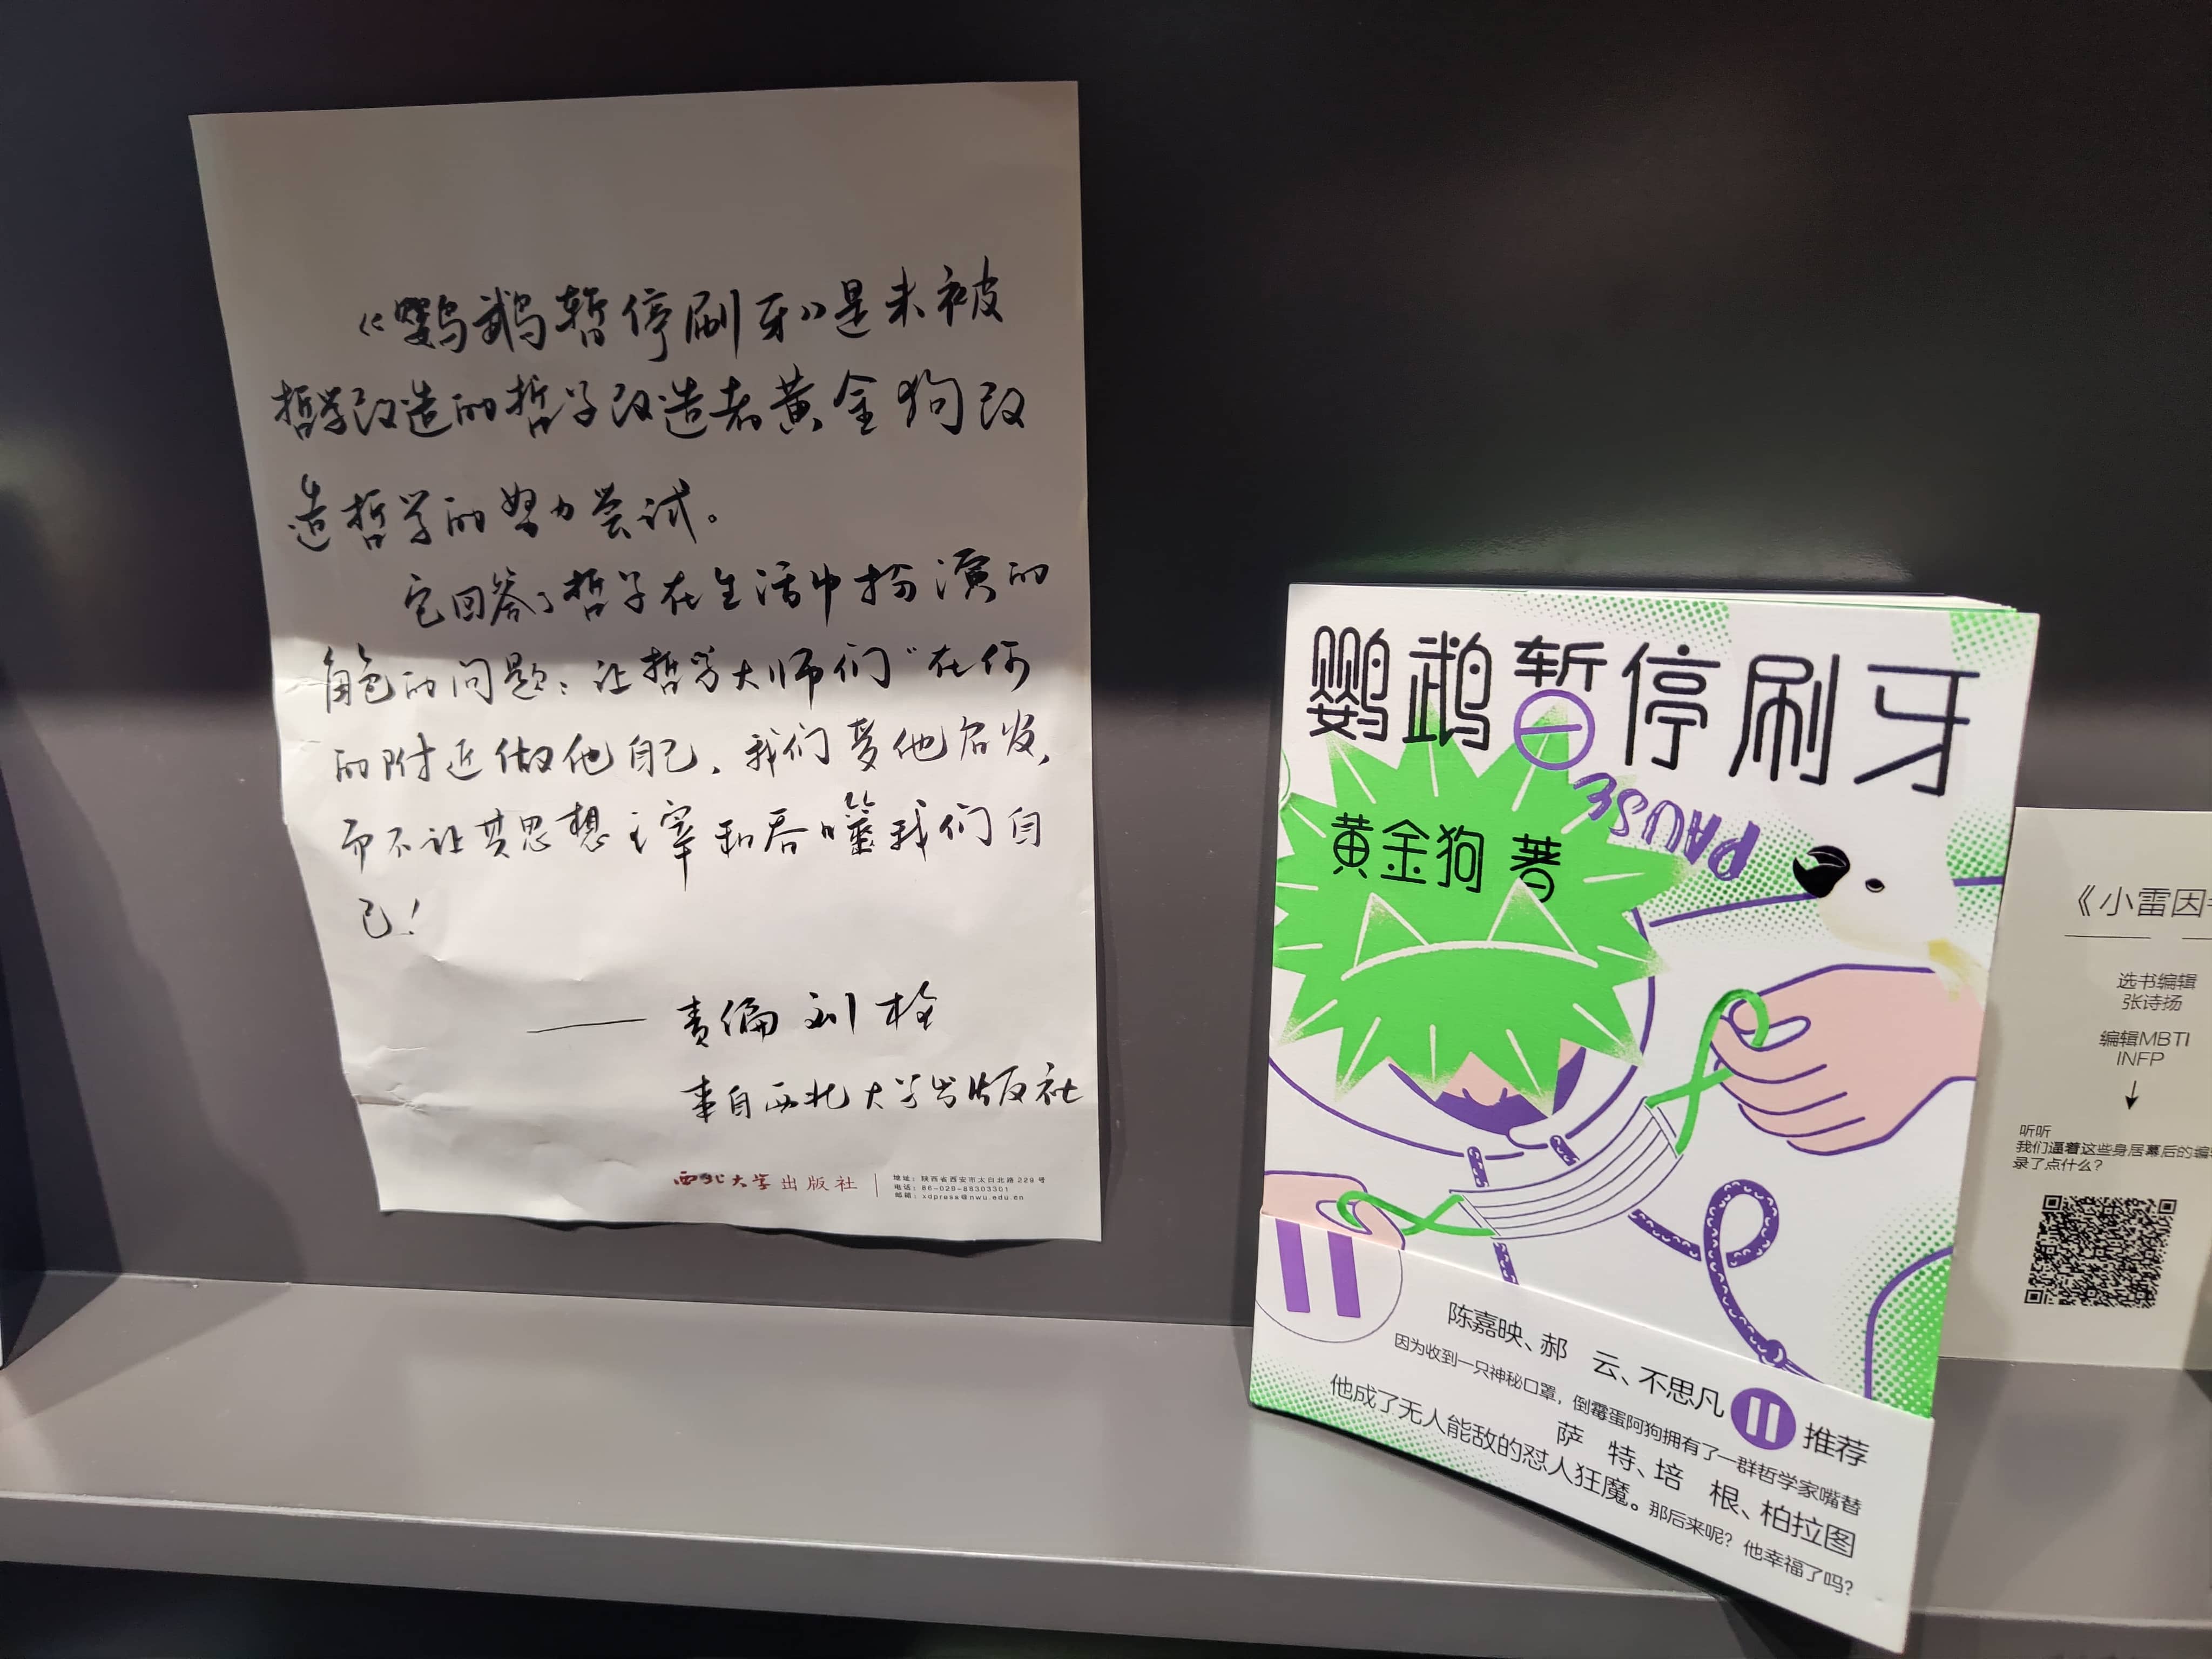 《鹦鹉暂停刷牙》是未被
哲学改造的哲学改造者黄金狗改
造哲学的努力尝试。
它回答了哲学在生活中扮演的
角色的问题：让哲学大师们“在何
的附近做他自己，我们受他启发，
而不让其思想主宰和吞噬我们自
己！
——责编 刘栓
来自西北大学出版社
西北大学出版社
地址：陕西省西安市太白北路 229 号
电话：86-029-88303301
邮箱：xdpress@nwu.edu.cn
鹦鹉暂停刷牙
PAUSE
黄金狗 著
陈嘉映、郝 云、不思凡 推荐
因为收到一只神秘口罩，倒霉蛋阿狗拥有了一群哲学家嘴替
萨 特、培 根、柏拉图
他成了无人能敌的怼人狂魔。那后来呢？他幸福了吗？
《小雷因
选书编辑
张诗扬
编辑MBTI
INFP
↓
听听
我们逼着这些身居幕后的编
录了点什么？